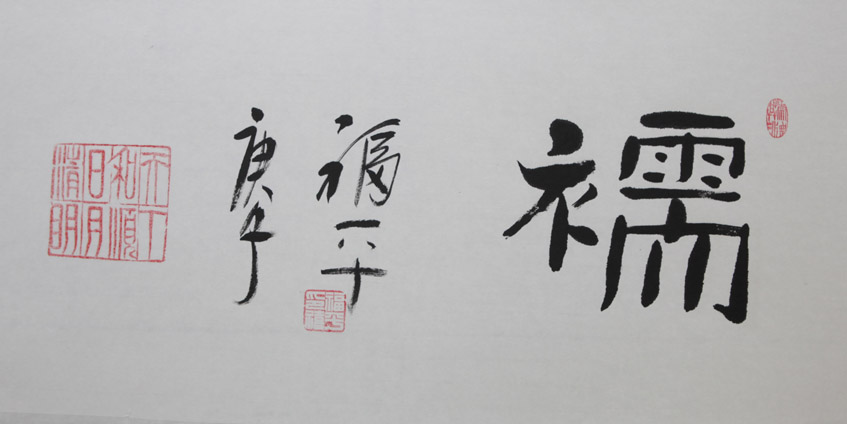 襦
福平
庚子
天下
和順
日月
清明